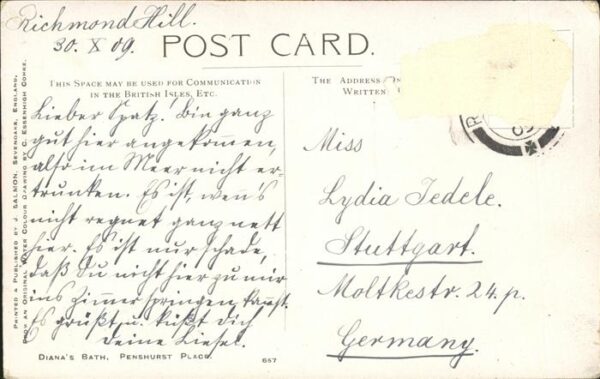 Richmond Hill.
30. X 09.
POST CARD.
THIS SPACE MAY BE USED FOR COMMUNICATION
IN THE BRITISH ISLES, ETC.
THE ADDRESS ON
WRITTEN
Lieber Spatz! Bin ganz
gut hier angekommen,
also im Meer nicht er-
trunken. Es ist, wenn's
nicht regnet ganz nett
hier. Es ist nur schade,
daß Du nicht hier zu mir
ins Zimmer springen kannst.
Es grüßt u. küßt Dich
Deine Liesel.
Miss
Lydia Jedele.
Stuttgart.
Moltkestr. 24. p.
Germany.
DIANA'S BATH, PENSHURST PLACE.
667
PRINTED & PUBLISHED BY J. SALMON, SEVENOAKS, ENGLAND,
FROM AN ORIGINAL WATER COLOUR DRAWING BY C. ESSENHIGH CORKE.